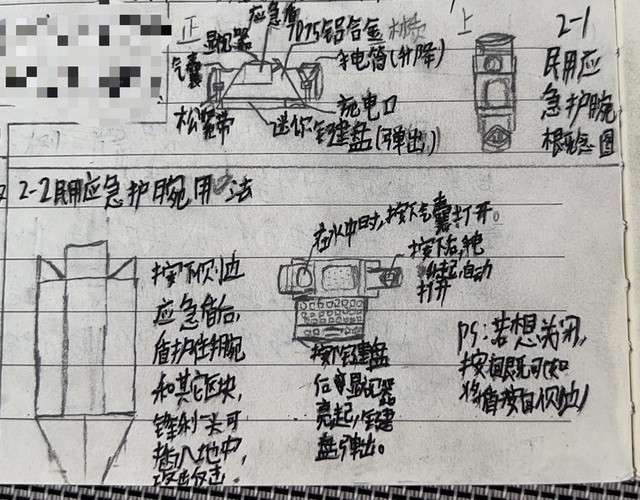 正
应急盾
7075铝合金
显视器
气囊
手电筒(升降)
松紧带
充电口
迷你键盘(弹出)
上
2-1
民用应
急护腕
概念图
2-2民用应急护腕用法
按下侧边
应急盾后,
盾护住手腕
和其它区块,
锋利尖头可
插入地中,
攻击敌击.
在水中时,按下气囊打开。
按下后,
起,自动
打开
按下键盘
位,显视器
亮起,键
盘弹出。
PS:若想关闭,
按钮既可
将盾按自侧边